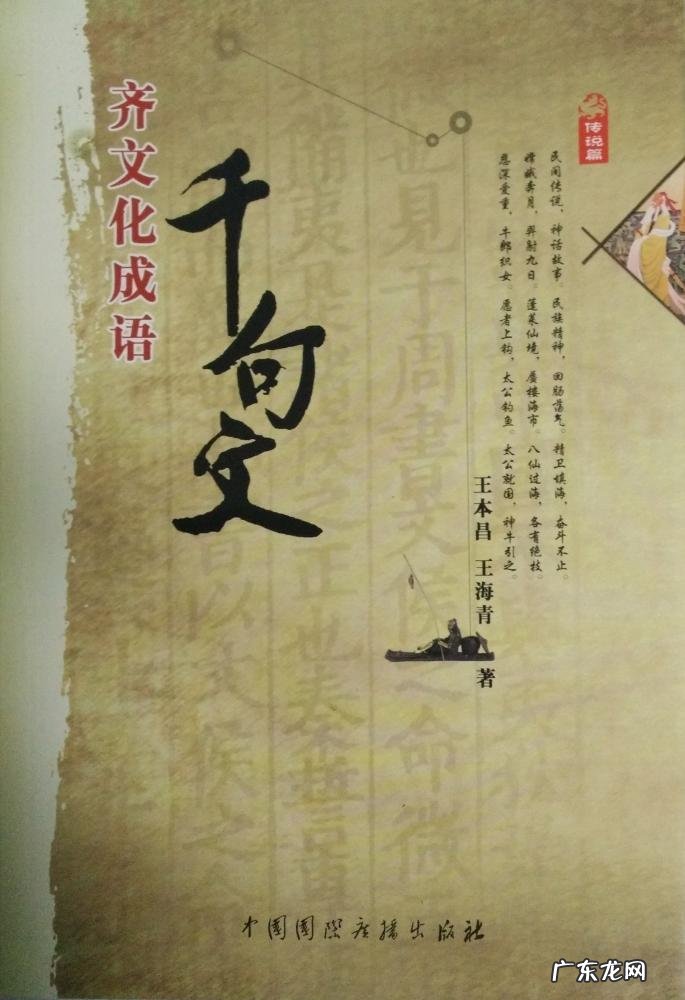 齐文化成语
千句文
传说篇
民间传说，神话故事。民族精神，回肠荡气。精卫填海，奋斗不止。
嫦娥奔月，羿射九日。蓬莱仙境，蜃楼海市。八仙过海，各有绝技。
恩深爱重，牛郎织女。愿者上钩，太公钓鱼。太公就国，神牛引之。
王本昌 王海青 著
中国国际广播出版社
广东龙网